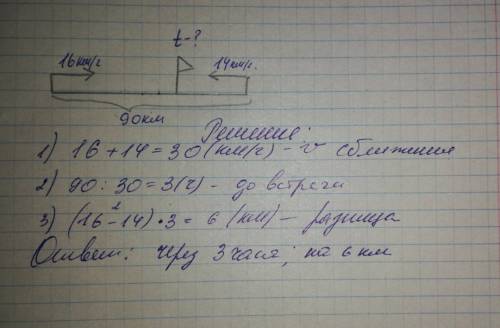 t-?
16км/г 14км/г.
90км
Решение:
1) 16 + 14 = 30 (км/г) - v сближения
2) 90 : 30 = 3 (г) - до встречи
2
3) (16 - 14) · 3 = 6 (км) - разница
Ответ: через 3 часа; на 6 км